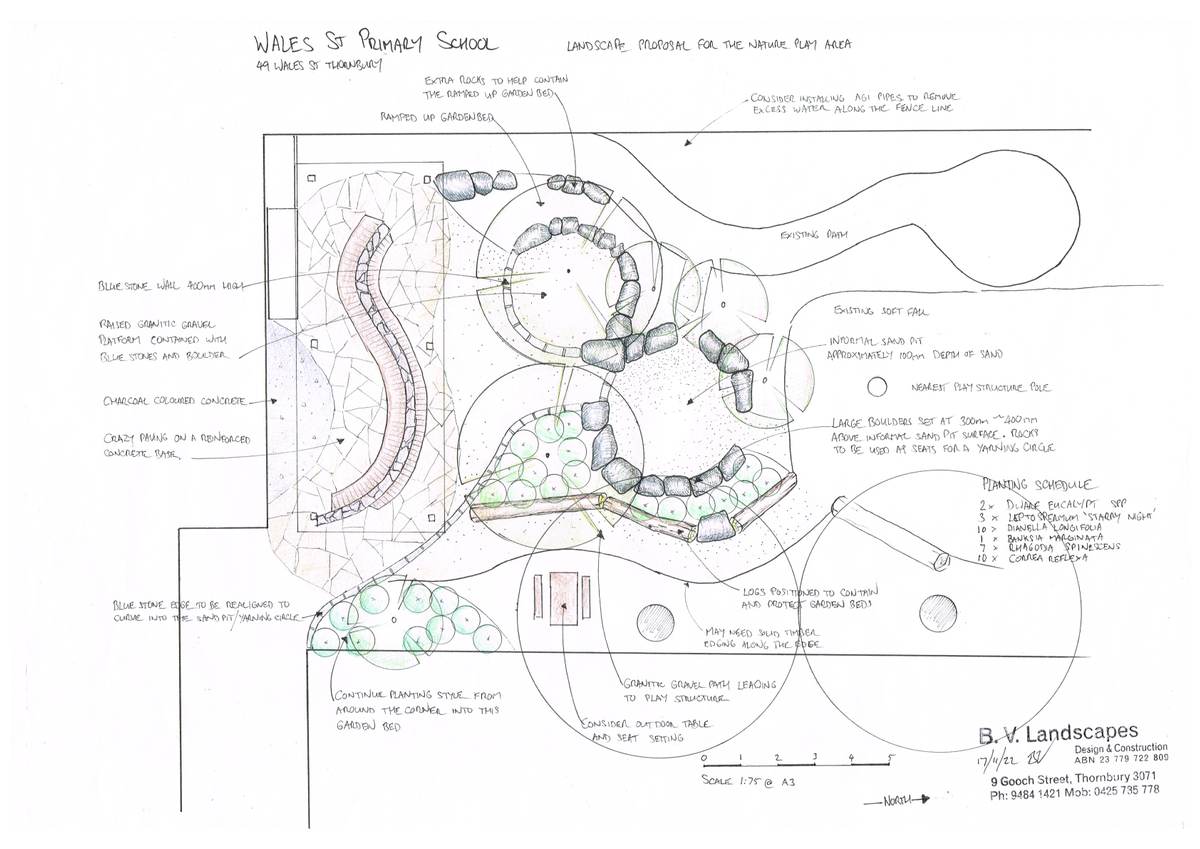 WALES ST PRIMARY SCHOOL
49 WALES ST THORNBURY
LANDSCAPE PROPOSAL FOR THE NATURE PLAY AREA
EXTRA ROCKS TO HELP CONTAIN
THE RAMPED UP GARDEN BED
RAMPED UP GARDENBED
CONSIDER INSTALLING AGI PIPES TO REMOVE
EXCESS WATER ALONG THE FENCE LINE
EXISTING PATH
BLUE STONE WALL 400mm HIGH
RAISED GRANITIC GRAVEL
PLATFORM CONTAINED WITH
BLUE STONES AND BOULDER
CHARCOAL COLOURED CONCRETE
CRAZY PAVING ON A REINFORCED
CONCRETE BASE.
EXISTING SOFT FALL
INFORMAL SAND PIT
APPROXIMATELY 100mm DEPTH OF SAND
NEAREST PLAY STRUCTURE POLE
LARGE BOULDERS SET AT 300mm ~ 400mm
ABOVE INFORMAL SAND PIT SURFACE. ROCKS
TO BE USED AS SEATS FOR A YARNING CIRCLE
PLANTING SCHEDULE
2 x DWARF EUCALYPT SPP
3 x LEPTOSPERMUM 'STARRY NIGHT'
10 x DIANELLA LONGIFOLIA
1 x BANKSIA MARGINATA
7 x RHAGODIA SPINESCENS
10 x CORREA REFLEXA
BLUE STONE EDGE TO BE REALIGNED TO
CURVE INTO THE SAND PIT/YARNING CIRCLE
LOGS POSITIONED TO CONTAIN
AND PROTECT GARDEN BEDS
MAY NEED SOLID TIMBER
EDGING ALONG THE EDGE
CONTINUE PLANTING STYLE FROM
AROUND THE CORNER INTO THIS
GARDEN BED
GRANITIC GRAVEL PATH LEADING
TO PLAY STRUCTURE
CONSIDER OUTDOOR TABLE
AND SEAT SETTING
0 1 2 3 4 5
SCALE 1:75 @ A3
NORTH
B. V. Landscapes
Design & Construction
ABN 23 779 722 809
17/11/22
9 Gooch Street, Thornbury 3071
Ph: 9484 1421 Mob: 0425 735 778